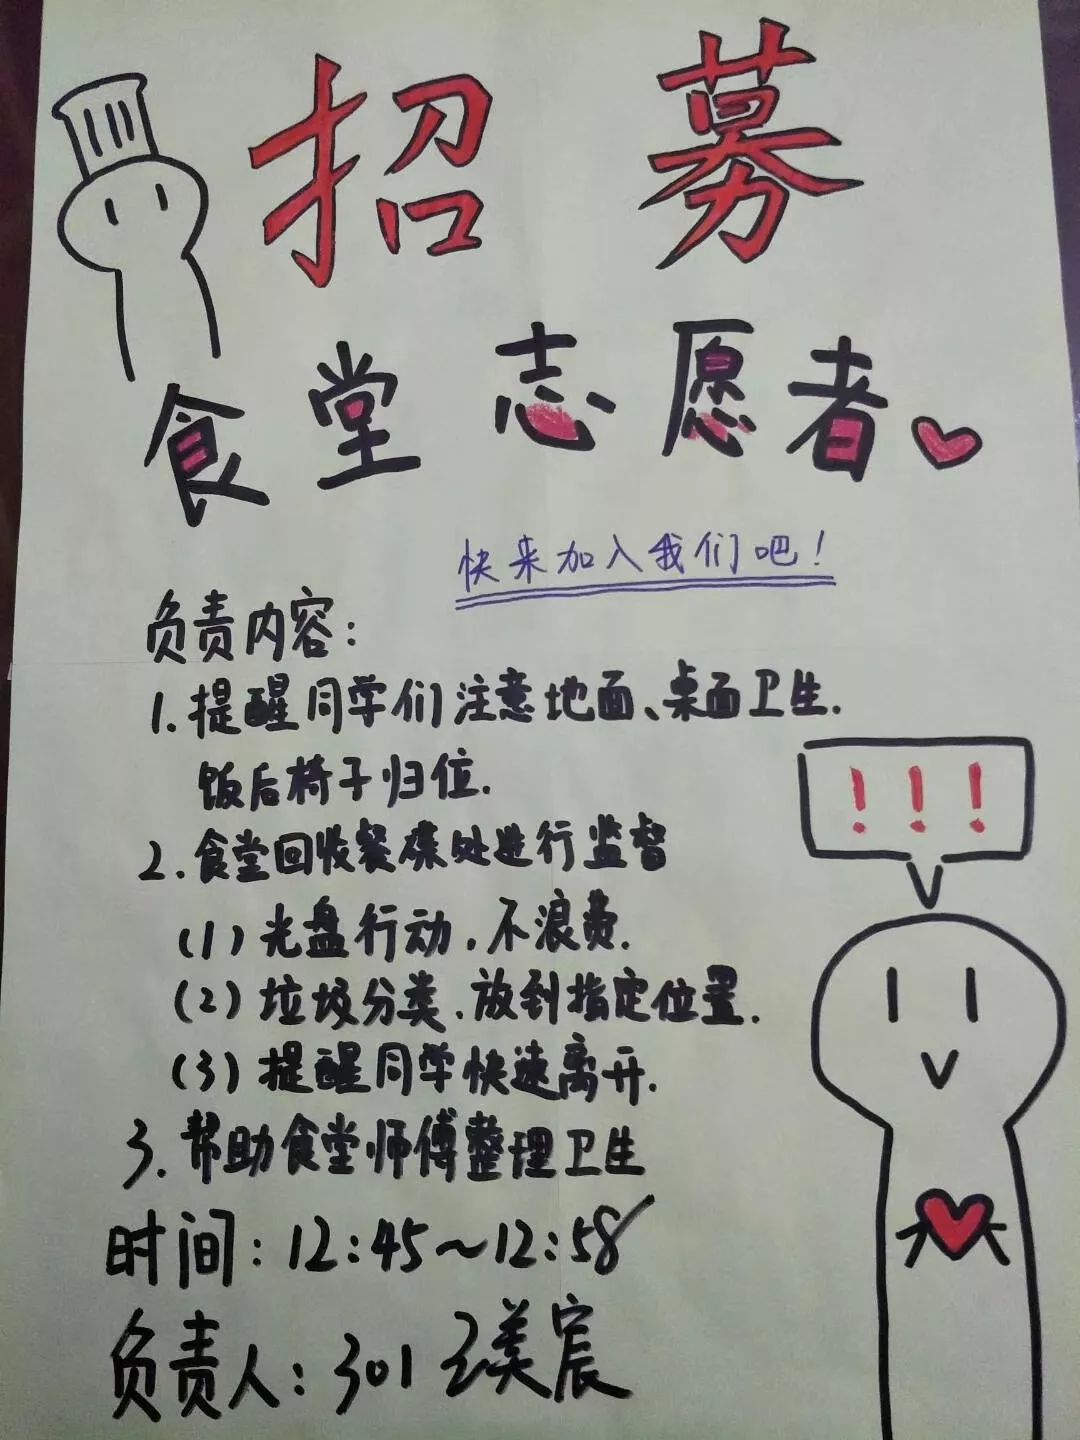 招募
食堂志愿者
快来加入我们吧！
负责内容：
1.提醒同学们注意地面、桌面卫生.
饭后椅子归位.
2.食堂回收餐碟处进行监督
(1)光盘行动，不浪费.
(2)垃圾分类，放到指定位置.
(3)提醒同学快速离开.
3.帮助食堂师傅整理卫生
时间：12:45~12:58
负责人：301 王美宸
!!!